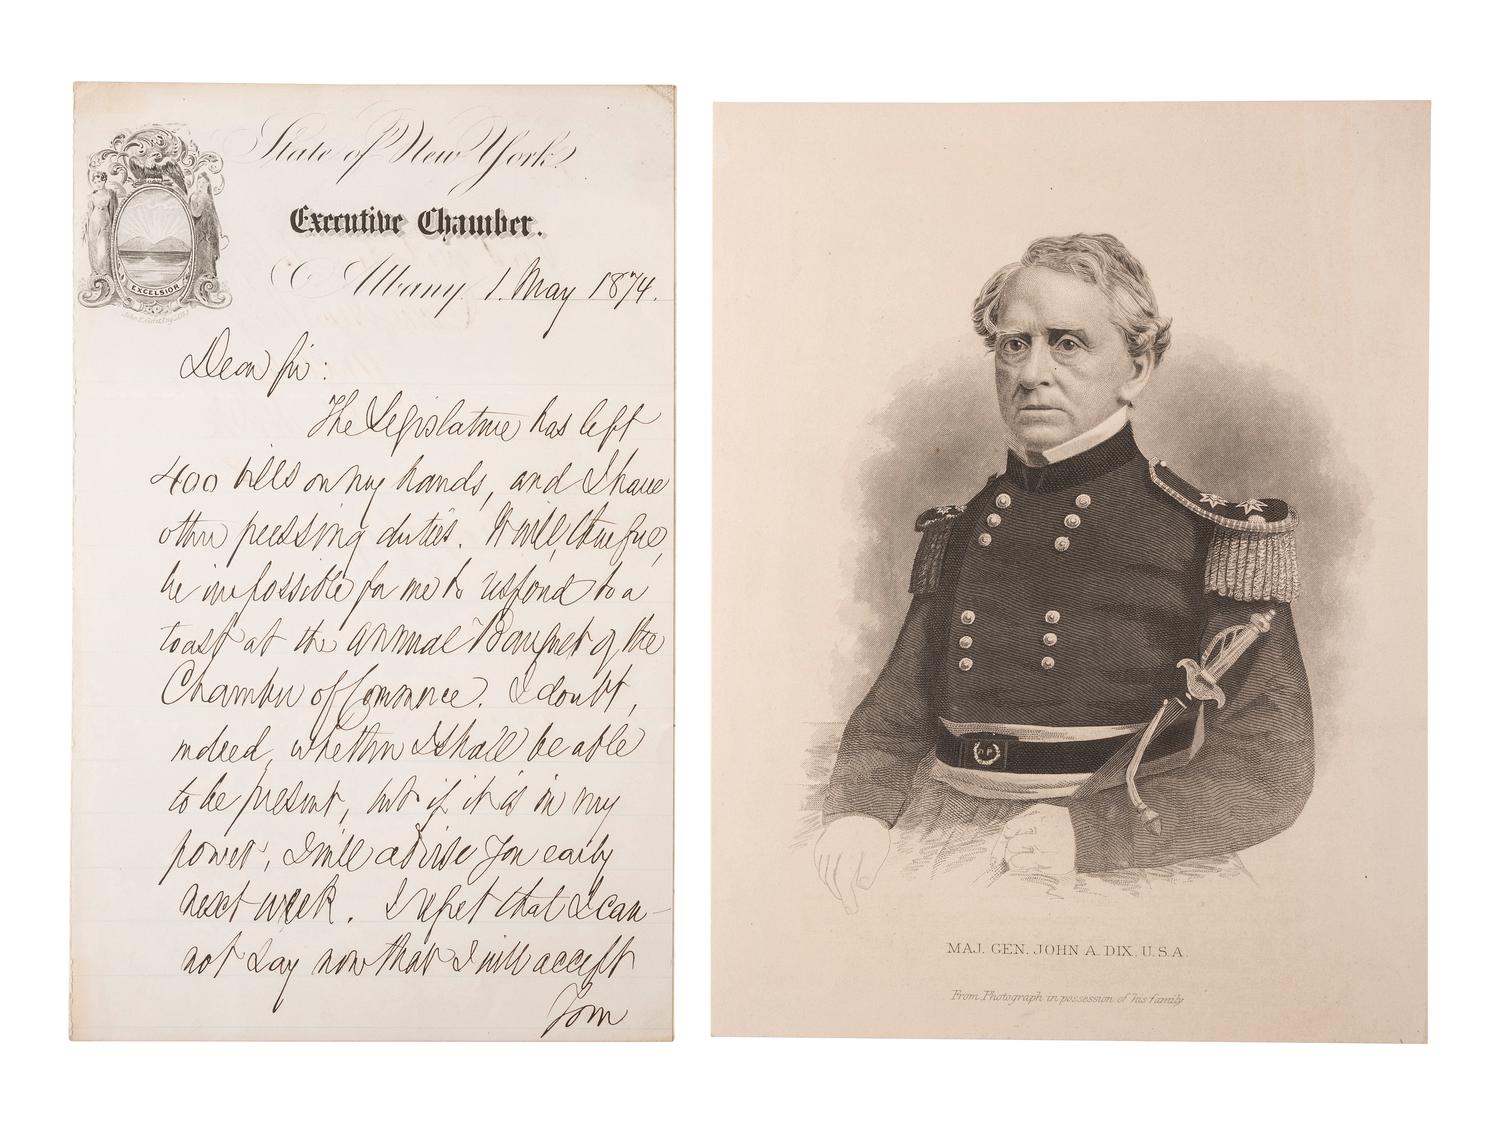 State of New York.
Executive Chamber.
EXCELSIOR
Albany 1. May 1874.
Dear Sir:
The Legislature has left
400 bills on my hands, and I have
other pressing duties. It will, therefore,
be impossible for me to respond to a
toast at the annual Banquet of the
Chamber of Commerce. I doubt,
indeed, whether I shall be able
to be present, but if it is in my
power, I will advise you early
next week. I regret that I can-
not say now that I will accept
Your
MAJ. GEN. JOHN A. DIX, U.S.A.
From Photograph in possession of his family